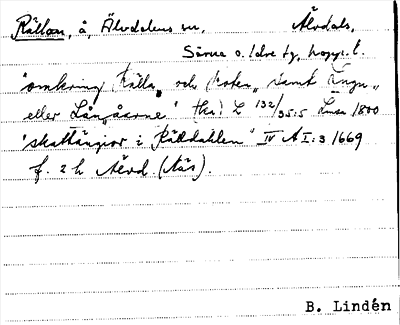 Rällan, å, Älvdalens sn. Älvdals,
Särna o. Idre tg, Kopp. l.
"omkring Rälla, och Roten, samt Ängn,
eller Långåarne" 132/35:5 1800
"skattängior i Rälldahlen" IV A I:3 1669
f. 2 h Älvd. (Näs).
B. Lindén